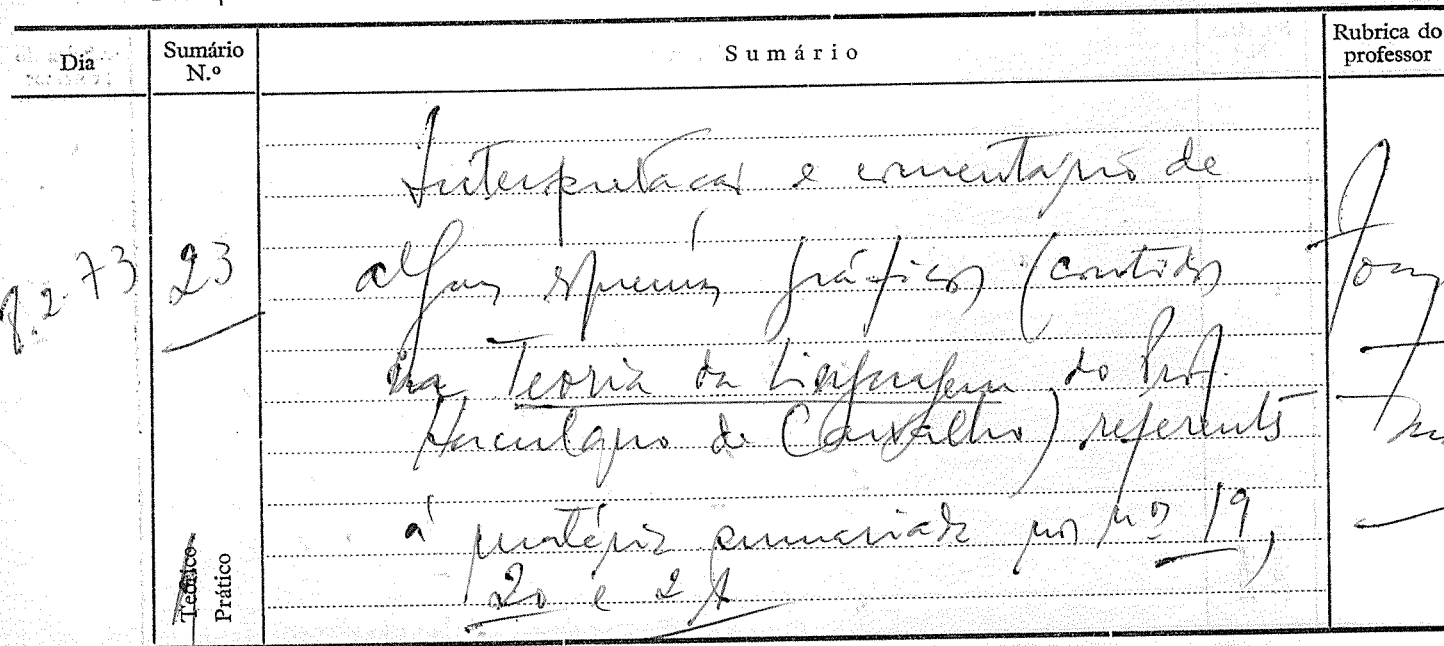 Dia
Sumário
N.º
Sumário
Rubrica do
professor
8.2.73
23
Interpretação e comentário de
alguns esquemas gráficos (contidos
na Teoria da Linguagem do Prof.
Herculano de Carvalho) referentes
à matéria sumariada nos nos 19,
20 e 21
Teórico
Prático